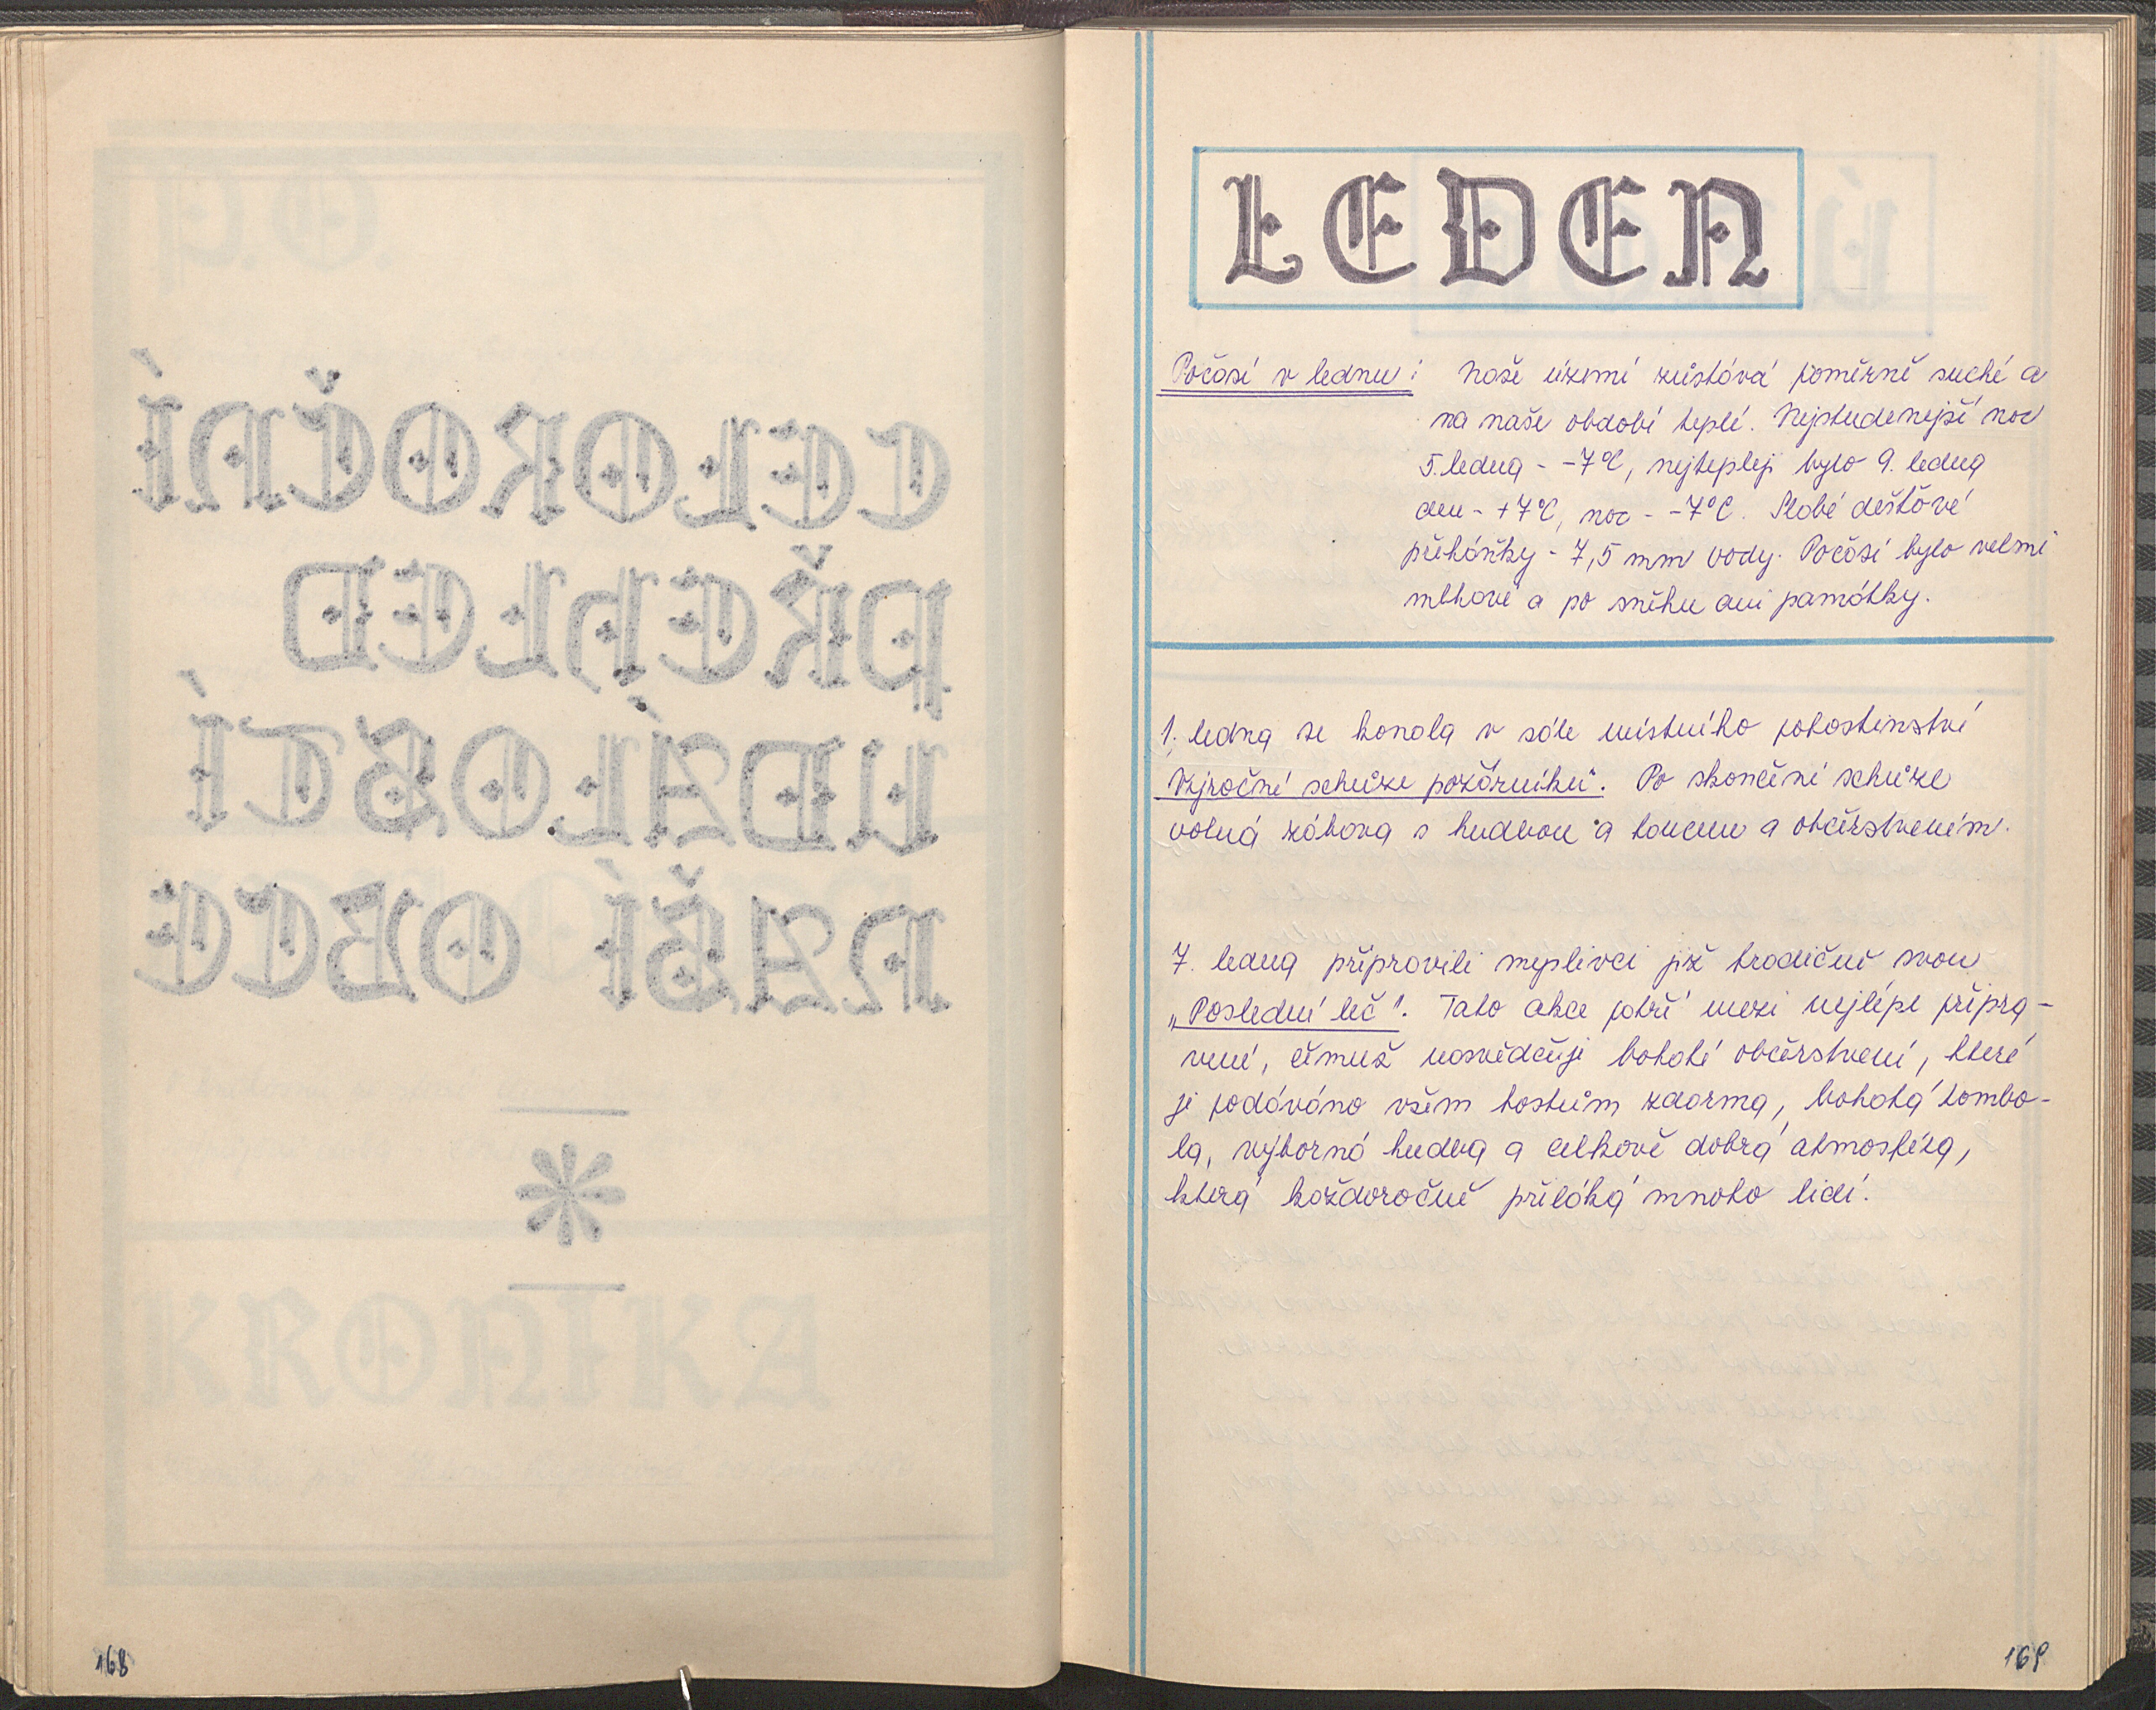 168
LEDEN
Počasí v lednu: Naše území zůstává poměrně suché a
na naše období teplé. Nejstudenější noc
5. ledna - -7°C, nejtepleji bylo 9. ledna
den - +7°C, noc - -7°C. Slabé dešťové
přeháňky - 7,5 mm vody. Počasí bylo velmi
mlhové a po sněhu ani památky.
1. ledna se konala v sále místního pohostinství
Výroční schůze požárníků. Po skončení schůze
volná zábava s hudbou a tancem a občerstvením.
7. ledna připravili myslivci již tradičně svou
„Poslední leč". Tato akce patří mezi nejlépe připra-
vené, čemuž nasvědčuje bohaté občerstvení, které
je podáváno všem hostům zdarma, bohatá tombo-
la, výborná hudba a celkově dobrá atmosféra,
která každoročně přiláká mnoho lidí.
169